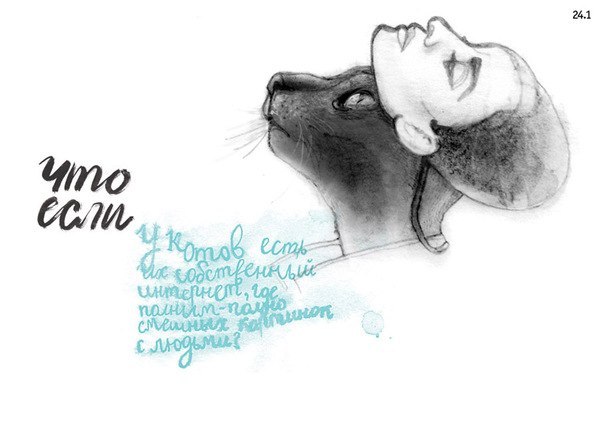 24.1
что
если
у котов есть
их собственный
интернет, где
полным-полно
смешных картинок
с людьми?